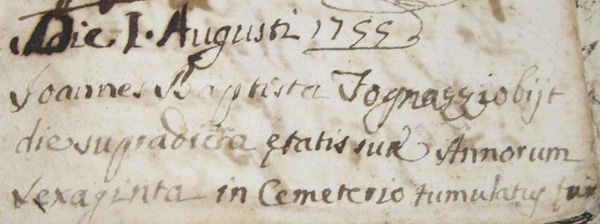 Die 1. Augusti 1755
Joannes Baptista Tognazzi obijt
die supradicta ętatis suę Annorum
sexaginta in Cemeterio tumulatus fuit